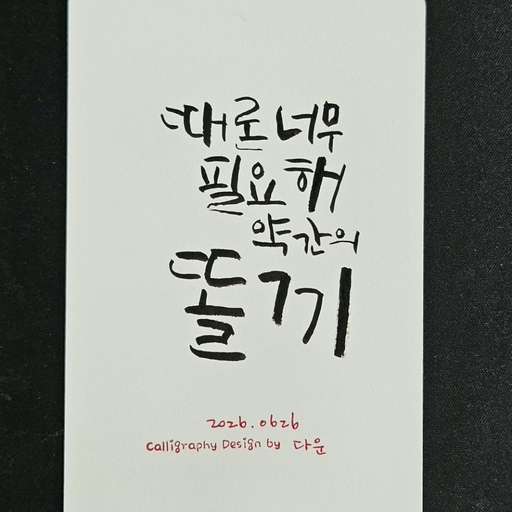 때로 너무
필요해
약간의
똘기
2026.0626
Calligraphy Design by 다운